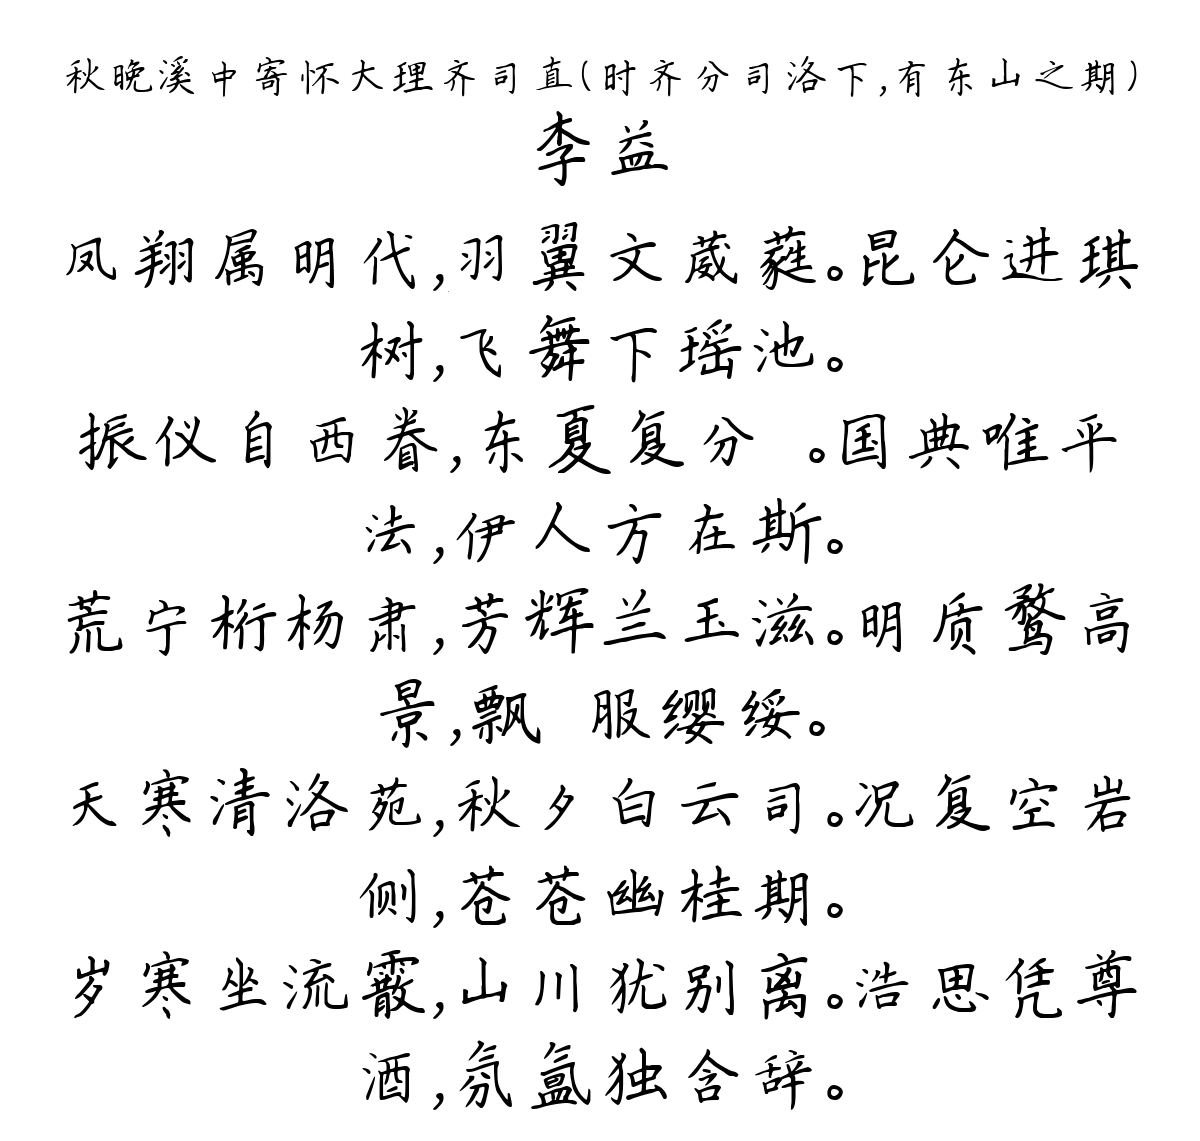 秋晚溪中寄怀大理齐司直(时齐分司洛下,有东山之期)
李益
凤翔属明代,羽翼文葳蕤。昆仑进琪
树,飞舞下瑶池。
振仪自西眷,东夏复分 。国典唯平
法,伊人方在斯。
荒宁桁杨肃,芳辉兰玉滋。明质鹜高
景,飘 服缨绥。
天寒清洛苑,秋夕白云司。况复空岩
侧,苍苍幽桂期。
岁寒坐流霰,山川犹别离。浩思凭尊
酒,氛氲独含辞。